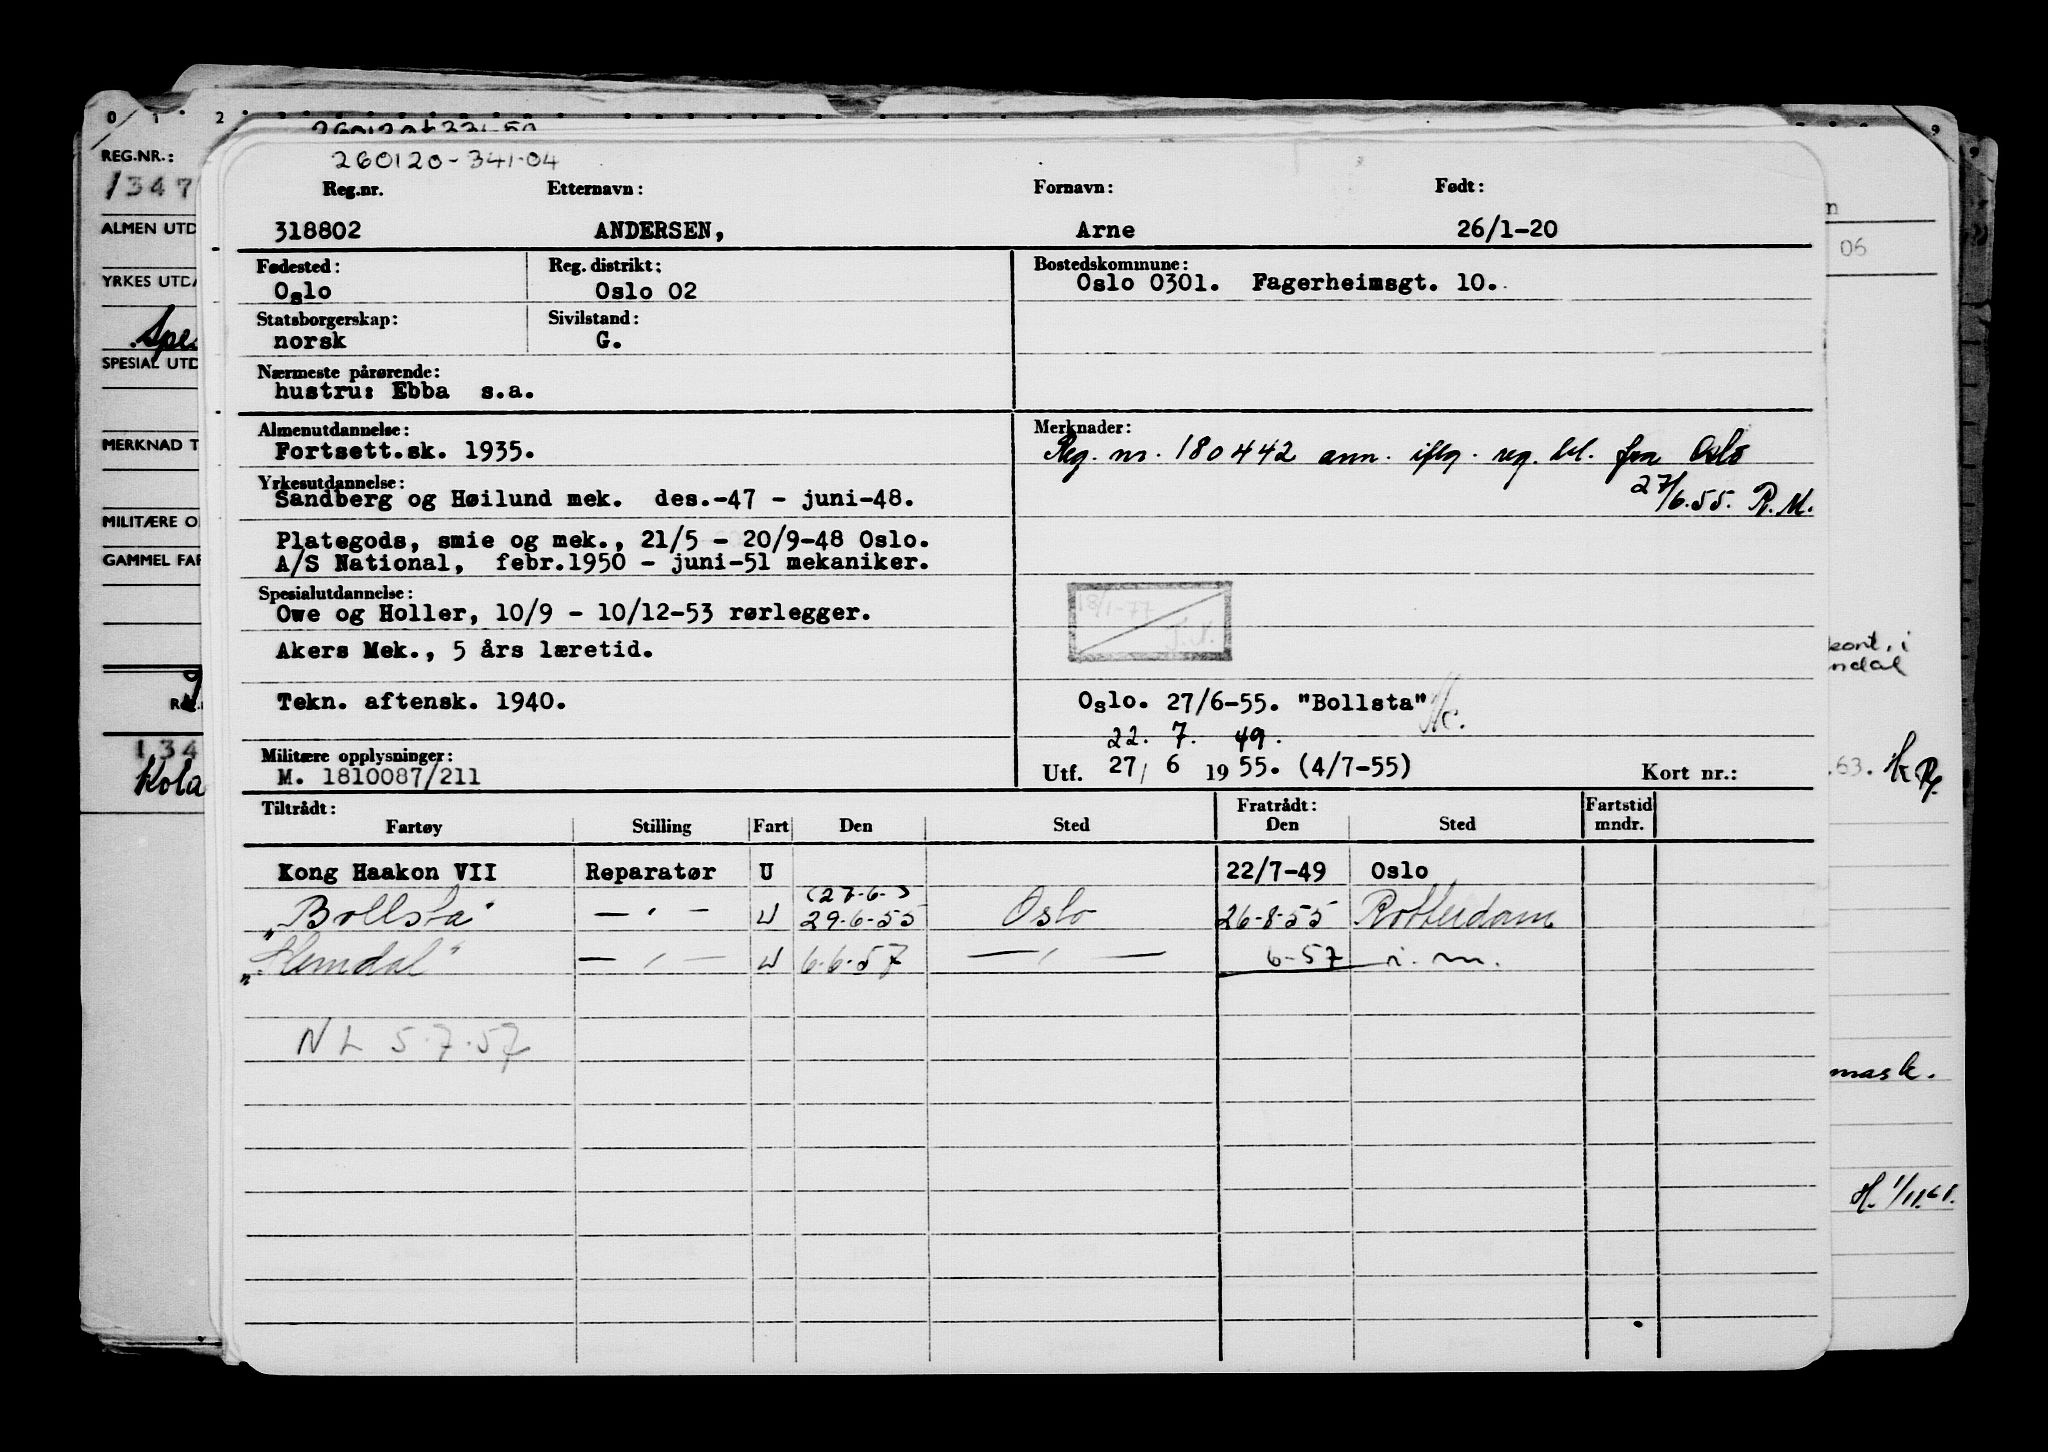 260120-341-04
Reg.nr. Etternavn: Fornavn: Født:
318802 ANDERSEN, Arne 26/1-20
Fødested: Reg. distrikt: Bostedskommune:
Oslo Oslo 02 Oslo 0301. Fagerheimsgt. 10.
Statsborgerskap: Sivilstand:
norsk G.
Nærmeste pårørende:
hustru: Ebba s.a.
Almenutdannelse: Merknader:
Fortsett.sk. 1935. Reg. nr. 180442 ann. iflg. reg. bl. fra Oslo
Yrkesutdannelse: 27/6.55. R.M.
Sandberg og Høilund mek. des.-47 - juni-48.
Plategods, smie og mek., 21/5 - 20/9-48 Oslo.
A/S National, febr.1950 - juni-51 mekaniker.
Spesialutdannelse: 18/1-77
Owe og Holler, 10/9 - 10/12-53 rørlegger. J.N.
Akers Mek., 5 års læretid.
Tekn. aftensk. 1940. Oslo. 27/6-55. "Bollsta"
22. 7. 49.
Militære opplysninger:
M. 1810087/211 Utf. 27/ 6 1955. (4/7-55) Kort nr.:
Tiltrådt: Fratrådt: Fartstid
Fartøy Stilling Fart Den Sted Den Sted mndr.
Kong Haakon VII Reparatør U 22/7-49 Oslo
(27-6-)
"Bollsta" — " — U 29-6-55 Oslo 26-8-55 Rotterdam
"Hemdal" — " — U 6-6-57 — " — 6-57 i.m.
NL 5.7.57
0 1 2
REG.NR.:
1347
ALMEN UTD
YRKES UTDA
Spes
SPESIAL UTD
MERKNAD T
MILITÆRE O
GAMMEL FAR
134
Kola
9
06
kont. i
ndal
.63. H.R.
mask.
H. 1/11.61.